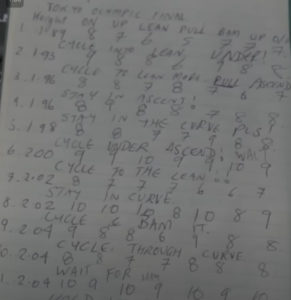 TOKYO OLYMPIC FINAL
HEIGHT ON UP LEAN PULL BAM UP OVER
1. 1.89 8 7 6 5 7 7 7
CYCLE INTO LEAN UNDER!
2. 1.93 9 8 8 6 9 8 8
CYCLE TO LEAN MORE. PULL ASCEND
3. 1.96 8 8 7 8 7 6 7
STAY IN ASCENT.
4. 1.96 8
STAY IN THE CURVE PLS!
5. 1.98 8 8 7 7 9 8 8
CYCLE UNDER ASCEND. WAIT
6. 2.00 9 9 10 9 9 10 9
CYCLE TO THE LEAN...
7. 2.02 8 7 7 7 6 6 7
STAY IN CURVE.
8. 2.02 10 10 10 8 10 8 9
CYCLE & BAM IT.
9. 2.04 9 8 8 6 9 8 8
CYCLE THROUGH CURVE
10. 2.04 8 8 7 7 8 8 8
WAIT FOR
11. 2.04 10 9 10 9 10 9 10